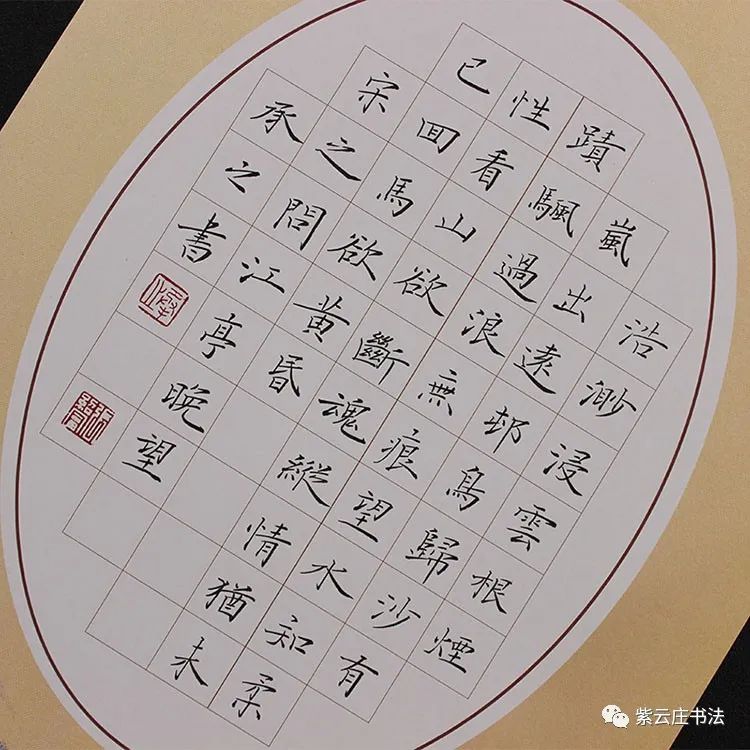 浩渺浸雲根煙
嵐出遠邨鳥歸沙有
蹟颿過浪無痕望水知柔
性看山欲斷魂縱情猶未
已囬馬欲黄昏
宋之問江亭晚望
承之書
紫云庄书法